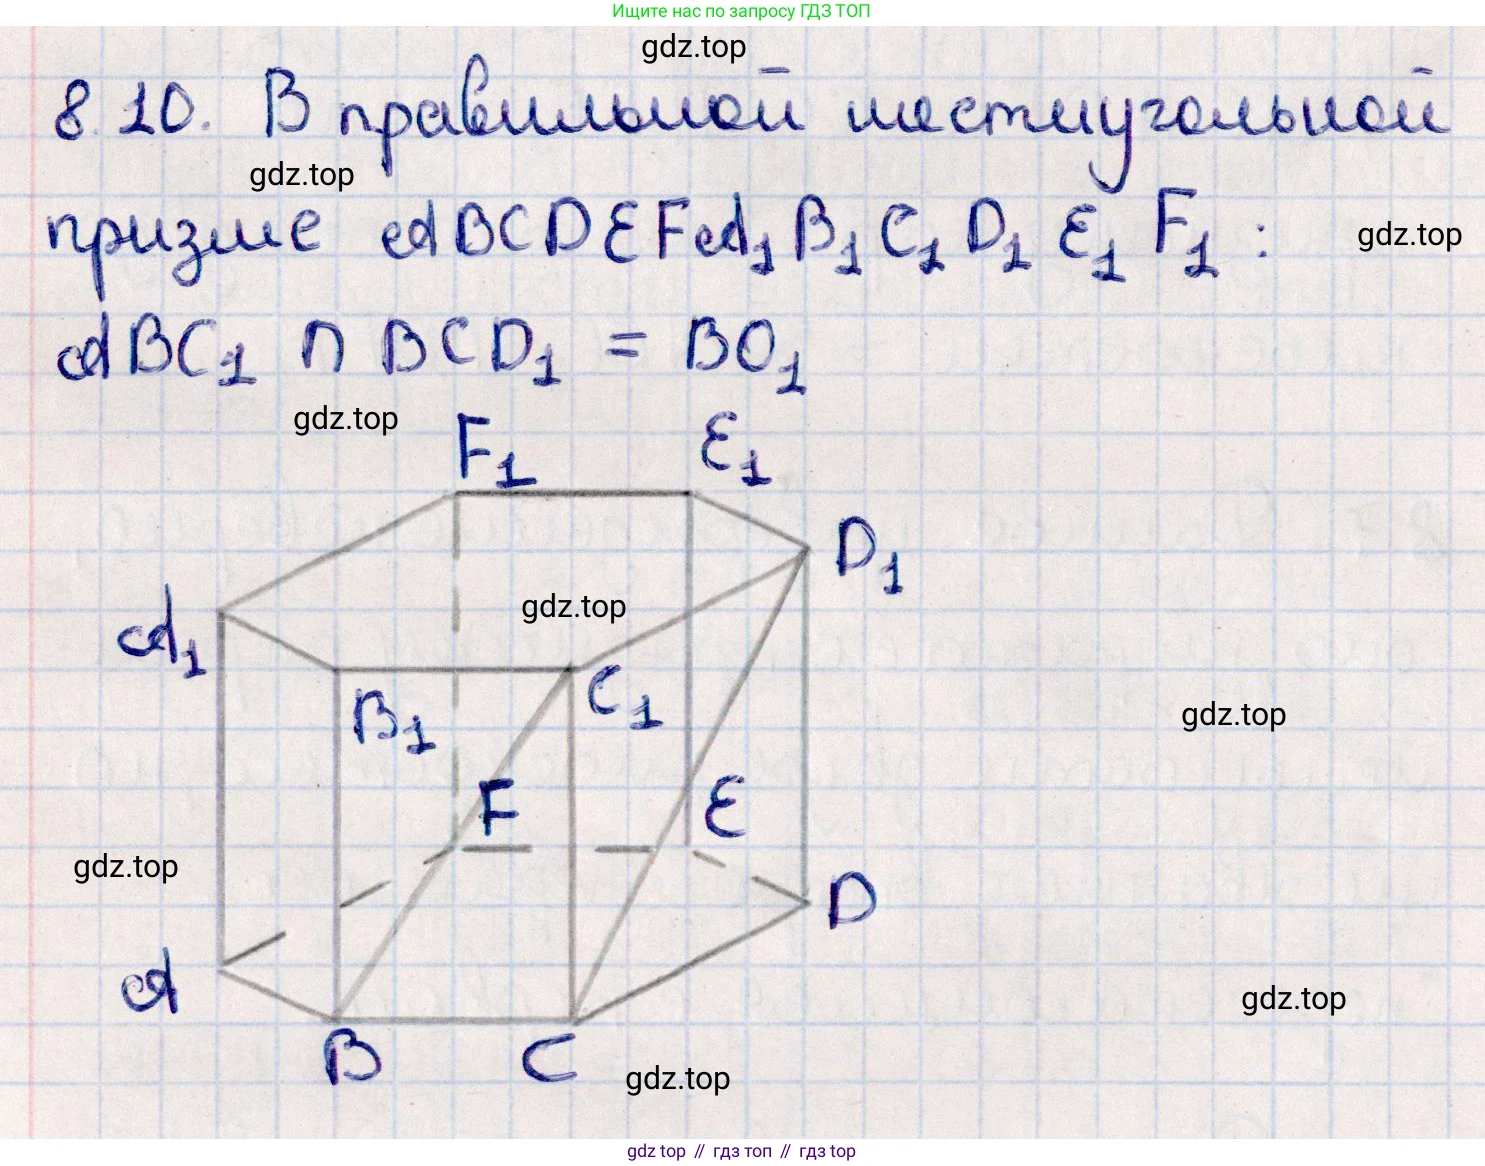 Ищите нас по запросу ГДЗ ТОП
gdz.top
8.10. В правильной шестиугольной
gdz.top
призме ABCDEFA₁B₁C₁D₁E₁F₁:
gdz.top
ABC₁ ∩ BCD₁ = BO₁
gdz.top
F₁ E₁
D₁
gdz.top
A₁
C₁
B₁
gdz.top
F E
gdz.top
D
A
gdz.top
B C
gdz.top
gdz top // гдз топ // gdz top